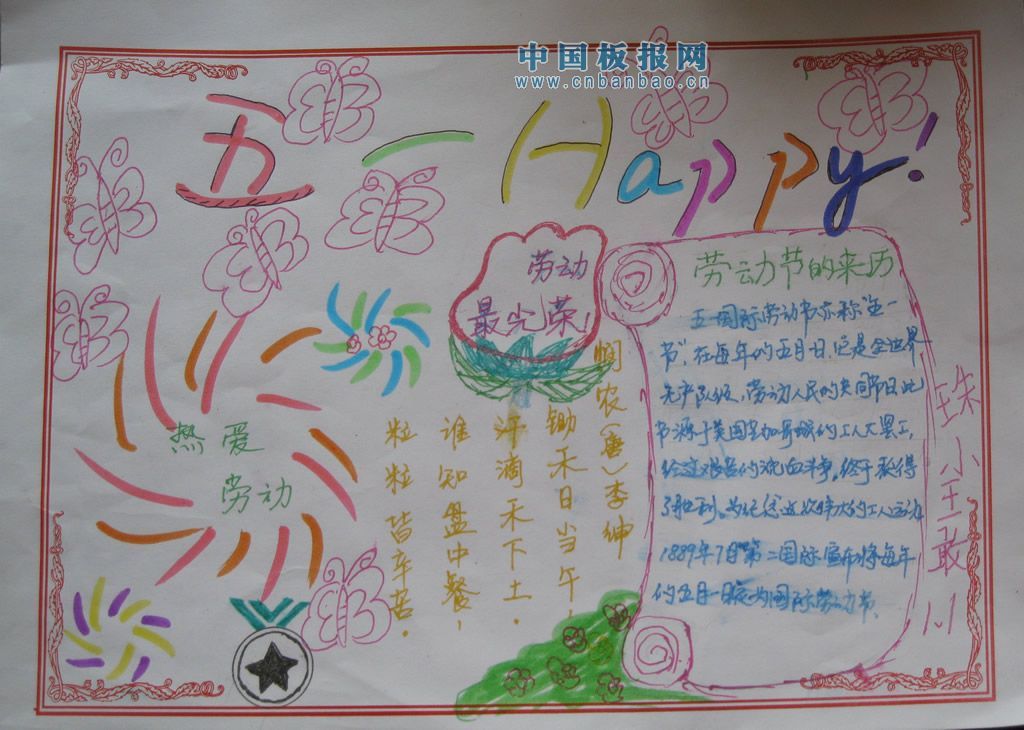 中国板报网
www.cnbanbao.cn
五一Happy!
劳动
最光荣
热爱
劳动
悯农(唐)李绅
锄禾日当午,
汗滴禾下土.
谁知盘中餐,
粒粒皆辛苦.
劳动节的来历
五一国际劳动节亦称"五一
节",在每年的五月一日.它是全世界
无产阶级、劳动人民的共同节日.此
节源于美国芝加哥城的工人大罢工,
经过艰苦的流血斗争,终于获得
了胜利.为纪念这次伟大的工人运动
1889年7月第二国际宣布将每年
的五月一日定为国际劳动节.
珠小 敢 1.1